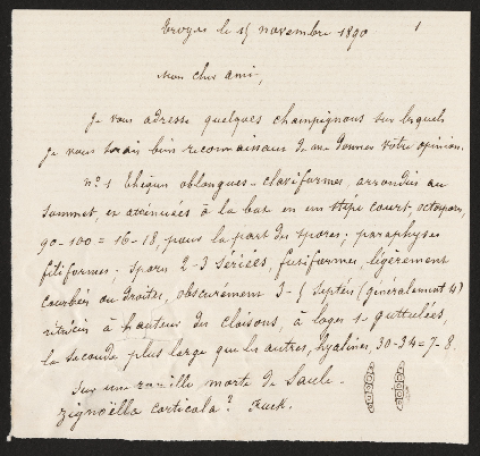 Troyes le 15 novembre 1890
1
Mon cher ami,
Je vous adresse quelques champignons sur lesquels
je vous serais bien reconnaissant de me donner vôtre opinion.
nº 1 Thèques oblongues-claviformes, arrondies au
sommet, et atténuées à la base en un stipe court, octospores,
90-100 = 16-18, pour la part. des spores; paraphyses
filiformes; spores 2-3 sériées, fusiformes, légèrement
courbées ou droites, obscurément 3-5 septées (généralement 4)
rétrécies à hauteur des cloisons, à loges 1-guttulées,
la seconde plus large que les autres, hyalines, 30-34 = 7-8.
Sur une ramille morte de Saule.
Zignoëlla corticola? Fuck.